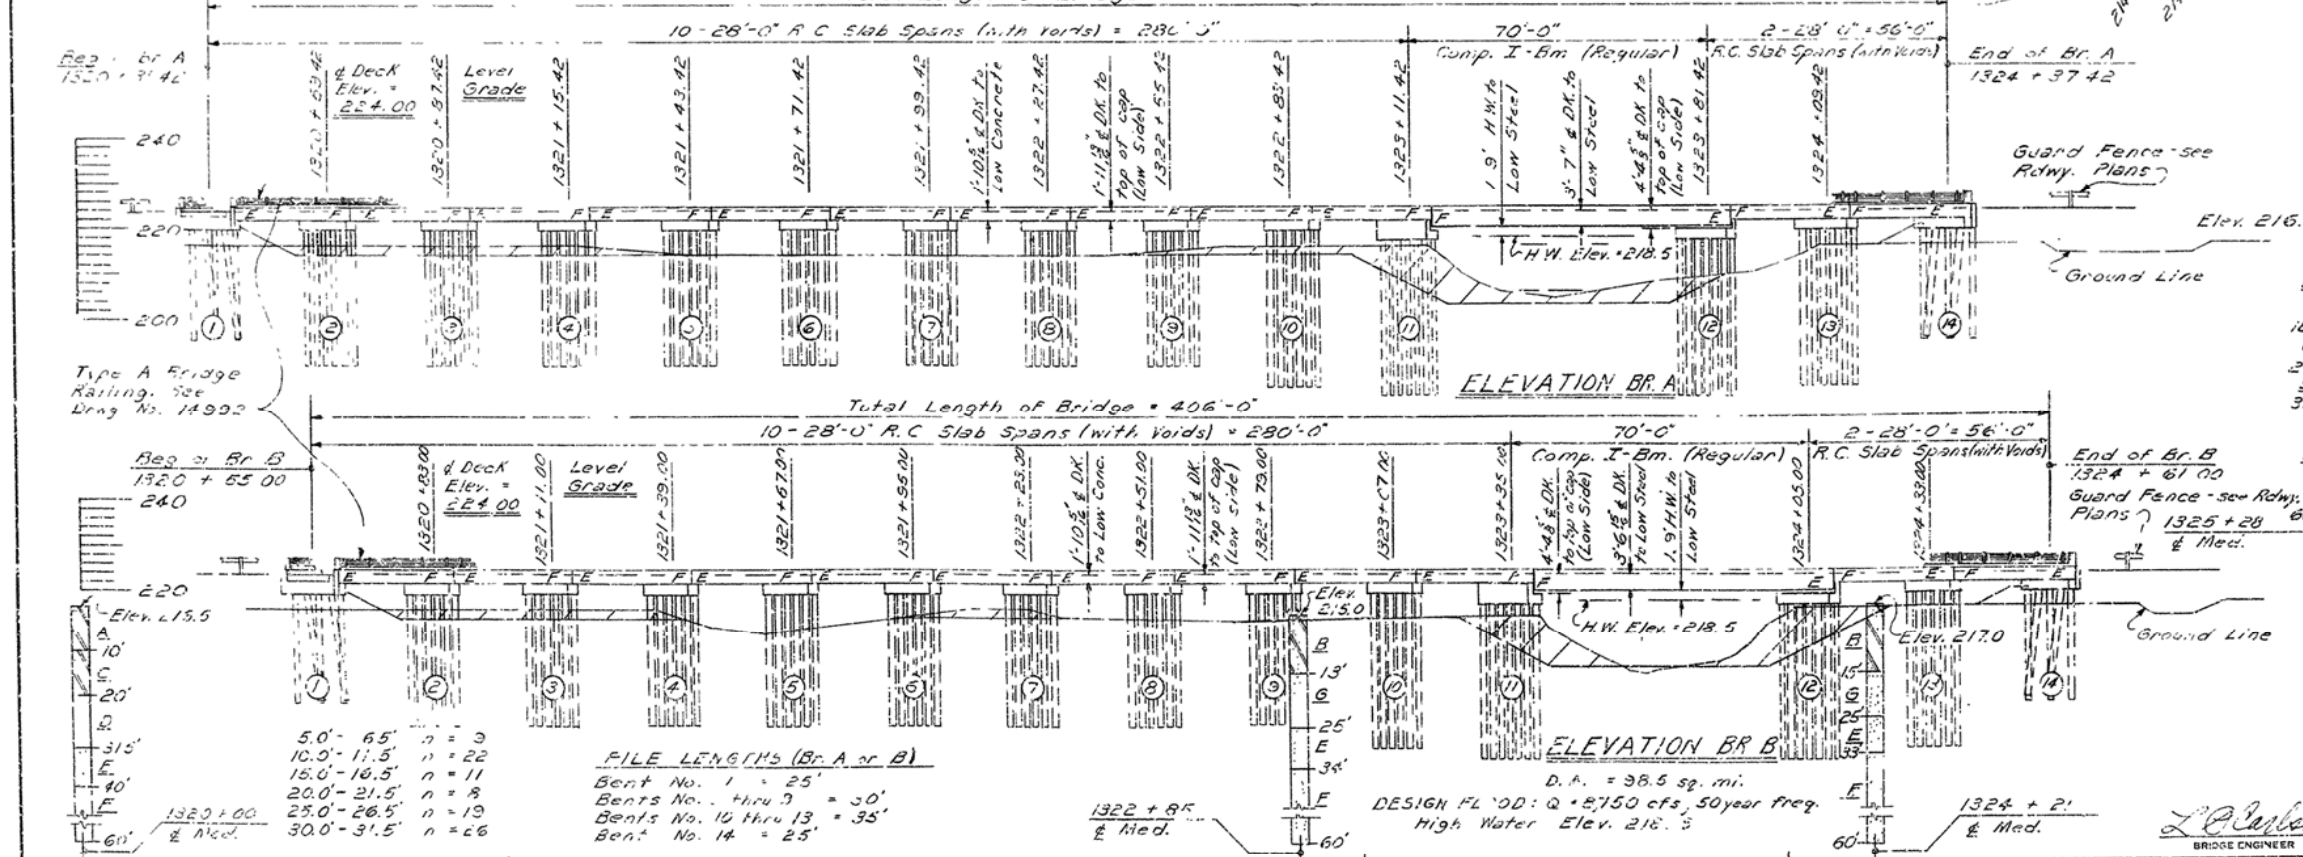 10-28'-0" R C Slab Spans (with voids) = 280'-0"
70'-0"
2-28'-0" = 56'-0"
Comp. I-Bm (Regular)
R.C. Slab Spans (with Voids)
Beg. br A
1320 + 31.42
End of Br. A
1324 + 37.42
₵ Deck
Elev. =
224.00
Level
Grade
1320 + 59.42
1320 + 87.42
1321 + 15.42
1321 + 43.42
1321 + 71.42
1321 + 99.42
1'-10 5/16" ₵ DK to
Low Concrete
1322 + 27.42
1'-11 13/16" ₵ DK. to
top of cap
(Low Side)
1322 + 55.42
1322 + 83.42
1323 + 11.42
1.9' H.W. to
Low Steel
3'-7" ₵ DK. to
Low Steel
₵ DK to
top of cap
(Low Side)
1323 + 81.42
1324 + 09.42
240
220
200
Guard Fence - see
Rdwy. Plans
Elev. 216.
H.W. Elev. = 218.5
Ground Line
1 2 3 4 5 6 7 8 9 10 11 12 13 14
ELEVATION BR. A
Type A Bridge
Railing. See
Drwg No. 14992
Total Length of Bridge = 406'-0"
10-28'-0" R.C Slab Spans (with Voids) = 280'-0"
70'-0"
2-28'-0" = 56'-0"
Comp. I-Bm. (Regular)
R.C. Slab Spans (with Voids)
Beg of Br B
1320 + 55.00
End of Br. B
1324 + 61.00
Guard Fence - see Rdwy.
Plans
1325 + 28
₵ Med.
₵ Deck
Elev. =
224.00
Level
Grade
1320 + 83.00
1321 + 11.00
1321 + 39.00
1321 + 67.00
1321 + 95.00
1322 + 23.00
1'-10 5/16" ₵ DK.
to Low Conc.
1322 + 51.00
1'-11 13/16" ₵ DK.
to top of cap
(Low side)
1322 + 79.00
1323 + 07.00
1323 + 35.00
₵ DK.
to top of cap
(Low Side)
3'-6 15/16" ₵ DK.
to Low Steel
1.9' H.W. to
Low Steel
1324 + 05.00
1324 + 33.00
240
220
Elev. 215.5
A
10'
C
20'
D
31.5'
E
40'
F
60'
1320 + 00
₵ Med.
Elev.
215.0
B
13'
G
25'
E
34'
F
60'
1322 + 85
₵ Med.
H.W. Elev. = 218.5
Elev. 217.0
Ground Line
B
15'
G
25'
E
33'
F
60'
1324 + 21
₵ Med.
1 2 3 4 5 6 7 8 9 10 11 12 13 14
5.0' - 6.5' n = 9
10.0' - 11.5' n = 22
15.0' - 16.5' n = 11
20.0' - 21.5' n = 8
25.0' - 26.5' n = 19
30.0' - 31.5' n = 26
PILE LENGTHS (Br. A or B)
Bent No. 1 = 25'
Bents No. thru 9 = 30'
Bents No. 10 thru 13 = 35'
Bent No. 14 = 25'
ELEVATION BR B
D.A. = 98.5 sq. mi.
DESIGN FLOOD: Q = 8,750 cfs, 50 year freq.
High Water Elev. 218.5
BRIDGE ENGINEER